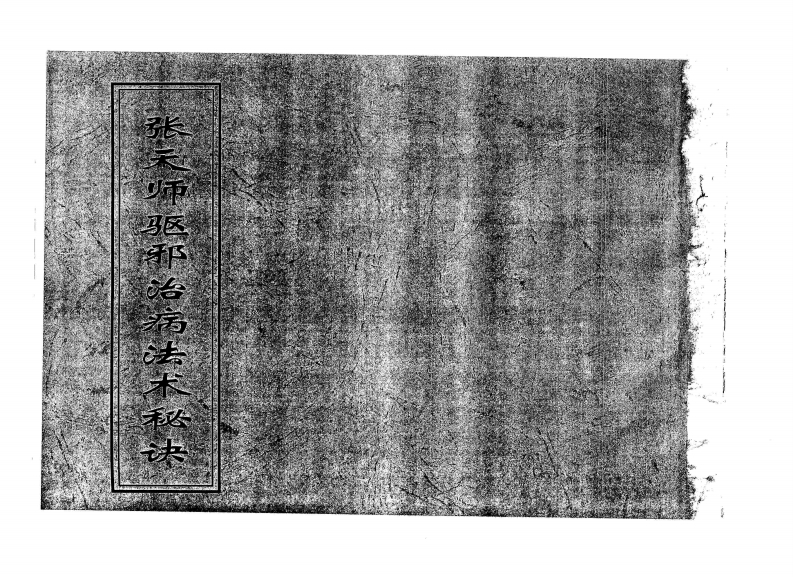 张天师驱邪治病法术秘诀